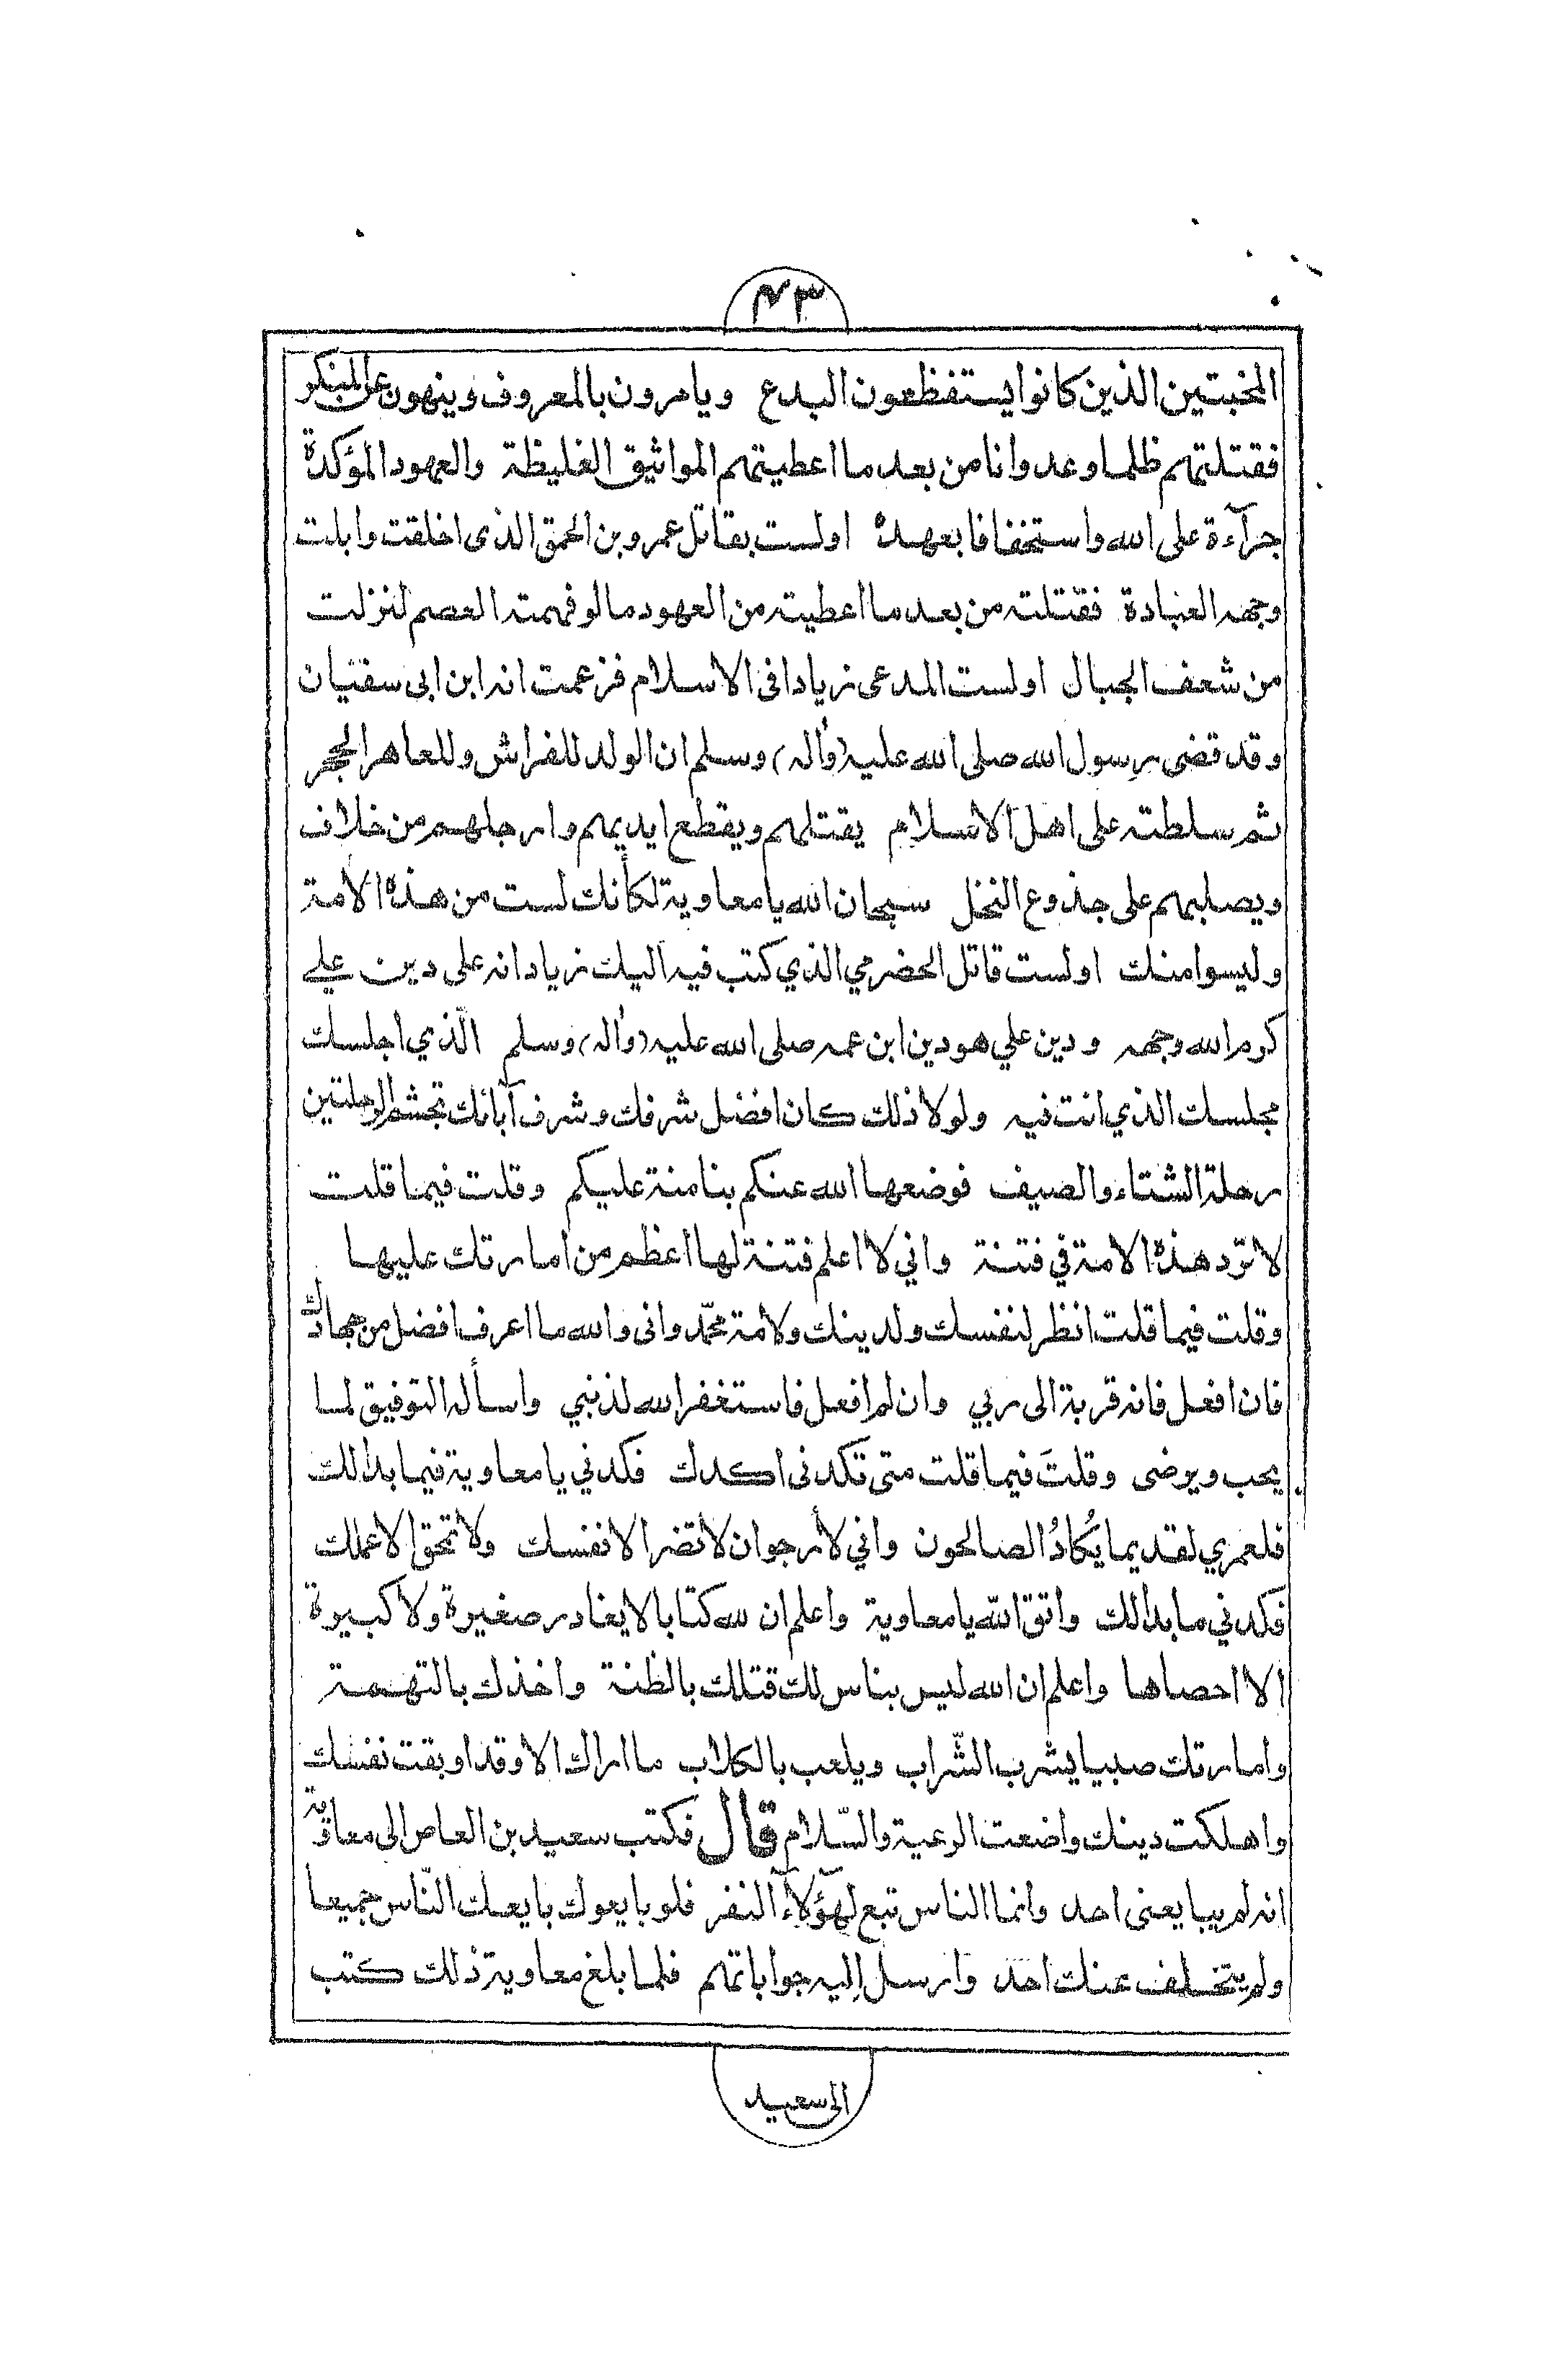 ٤٣
المخبتين الذين كانوا يستفظعون البدع ويامرون بالمعروف وينهون عن المنكر
فقتلتهم ظلما وعدوانا من بعد ما اعطيتهم المواثيق الغليظة والعهود المؤكدة
جرآءة على الله واستخفافا بعهده اولست بقاتل عمرو بن الحمق الذى اخلقت وابلت
وجهه العبادة فقتلته من بعد ما اعطيته من العهود ما لو فهمته العصم لنزلت
من شعف الجبال اولست المدعى زيادا فى الاسلام فزعمت انه ابن ابى سفيان
وقد قضى رسول الله صلى الله عليه (وأله) وسلم ان الولد للفراش وللعاهر الحجر
ثم سلطته على اهل الاسلام يقتلهم ويقطع ايديهم وارجلهم من خلاف
ويصلبهم على جذوع النخل سبحان الله يا معاوية لكأنك لست من هذه الامة
وليسوا منك اولست قاتل الحضرمي الذي كتب فيه اليك زياد انه على دين علي
كرم الله وجهه ودين علي هو دين ابن عمه صلى الله عليه (وأله) وسلم الّذي اجلسك
مجلسك الذي انت فيه ولولا ذلك كان افضل شرفك وشرف آبائك تجشم الرحلتين
رحلة الشتاء والصيف فوضعها الله عنكم بنا منة عليكم وقلت فيما قلت
لا تردّ هذه الامة في فتنة واني لا اعلم فتنة لها اعظم من امارتك عليها
وقلت فيما قلت انظر لنفسك ولدينك ولامة محمّد وانى والله ما اعرف افضل من جهادك
فان افعل فانه قربة الى ربي وان لم افعل فاستغفر الله لذنبي واسأله التوفيق لما
يحب ويرضى وقلتَ فيما قلت متى تكدنى اكدك فكدني يا معاوية فيما بدا لك
فلعمري لقديما يُكادُ الصالحون واني لأرجو ان لا تضر الا نفسك ولا تمحق الا عملك
فكدني ما بدا لك واتق اللّه يا معاوية واعلم ان لله كتابا لا يغادر صغيرة ولا كبيرة
الا احصاها واعلم ان الله ليس بناس لك قتلك بالظنة واخذك بالتهمة
وامارتك صبيا يشرب الشّراب ويلعب بالكلاب ما اراك الا وقد اوبقت نفسك
واهلكت دينك واضعت الرعية والسّلام قال فكتب سعيد بن العاص الى معاوية
انه لم يبايعنى احد وانما الناس تبع لهؤلآء النفر فلو بايعوك بايعك النّاس جميعا
ولم يتخلف عنك احد وارسل اليه جواباتهم فلما بلغ معاوية ذلك كتب
الى سعيد